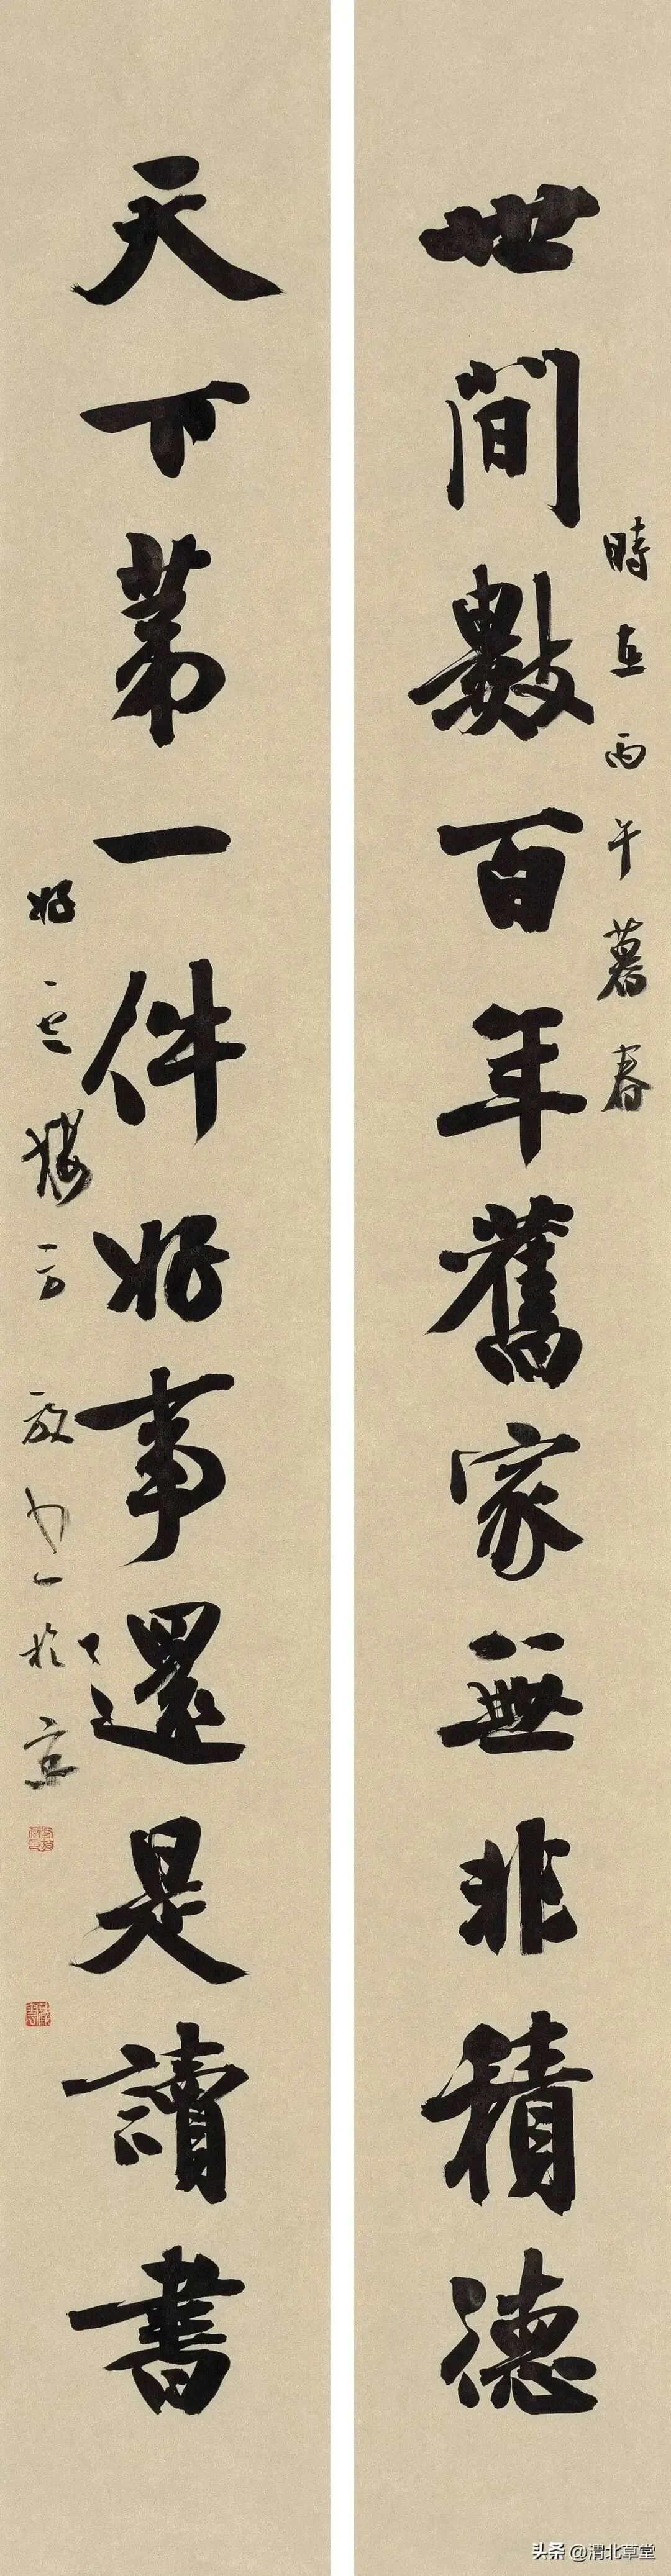 時在丙午暮春
世間數百年舊家無非積德
天下苐一件好事還是讀書
好雲樓方放书於京
头条 @渭北草堂